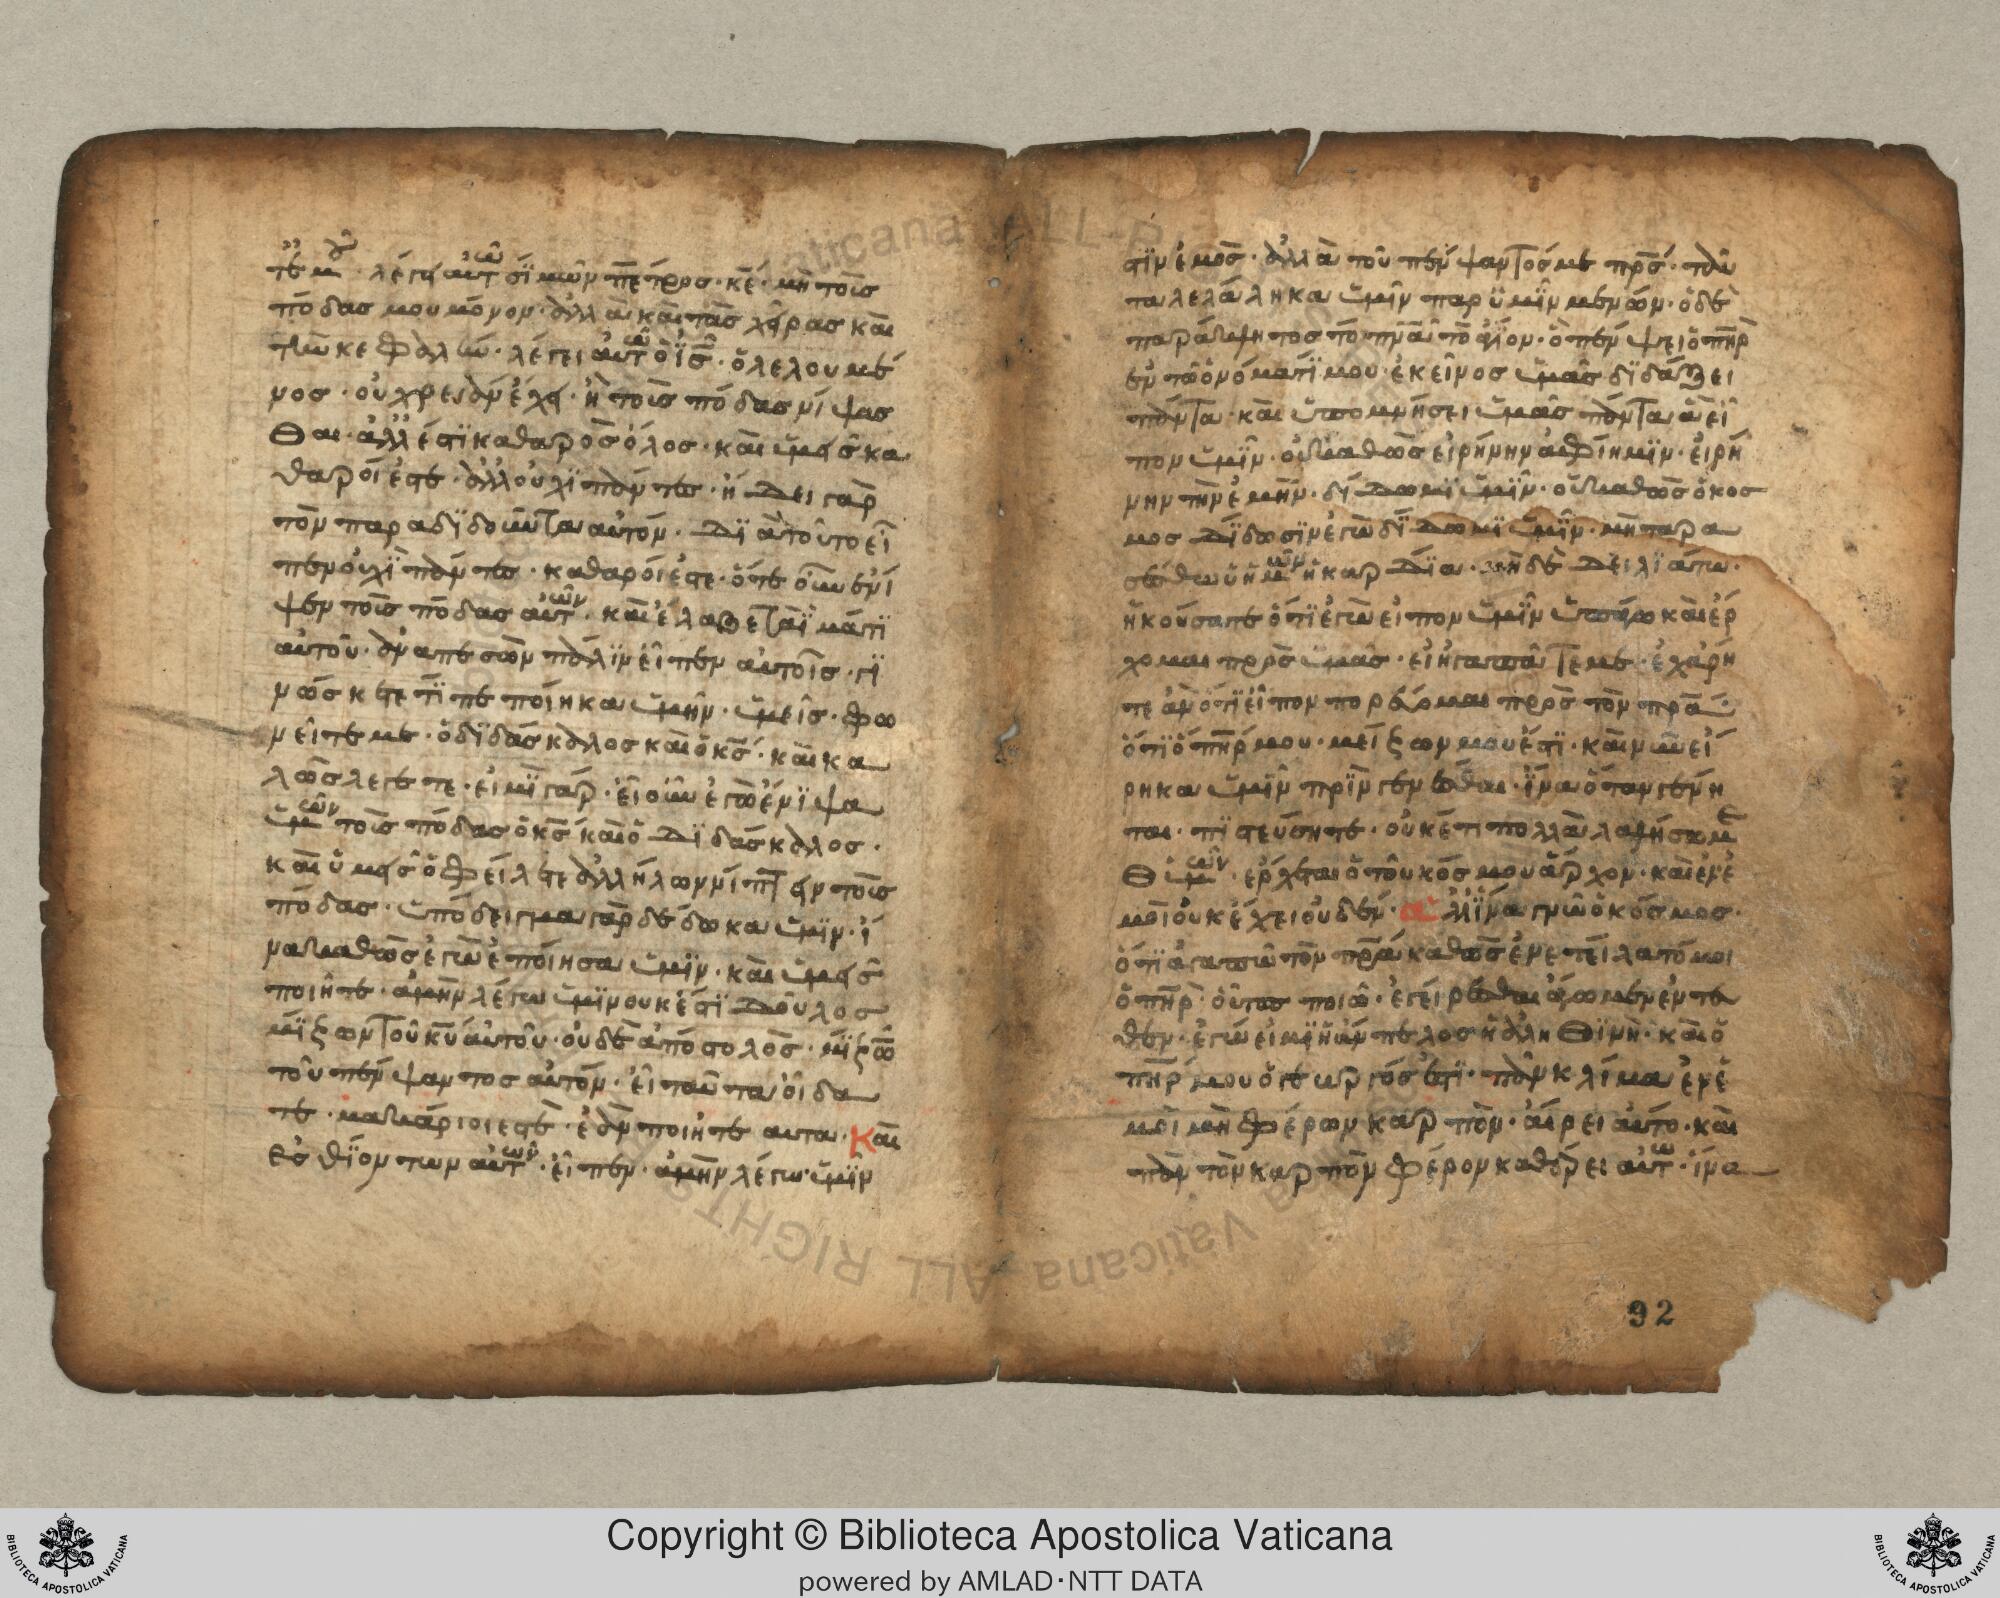 τέ μου· λέγει αὐτῶ σίμων πέτρος· κέ· μὴ τοὶς
πόδας μου μόνον· ἀλλὰ καὶ τὰς χεῖρας καὶ
τὴν κεφαλήν· λέγει αὐτῶ ὁ ἰς· ὁ λελουμέ
νος· οὐ χρείαν έχει· ἢ τοὶς πόδας νίψασ
θαι· ἀλλ έστι καθαρὸς όλος· καὶ ὑμεῖς κα
θαροί έστε· ἀλλ οὐχὶ πάντες· ἤδει γὰρ
τὸν παραδιδοῦντα αὐτόν· διὰ τοῦτο εἶ
πεν οὐχὶ πάντες· καθαροί έστε· ὅτε οὖν ένι
ψεν τοὶς πόδας αὐτῶν· καὶ έλαβε τὰ ϊμάτια
αὐτοῦ· ἀναπεσὼν πάλιν εἶπεν αὐτοῖς· γι
νώσκετε τί πεποίηκα ὑμῖν· ὑμεῖς· φω
νεῖτε με· ὁ διδάσκαλος καὶ ὁ κς· καὶ κα
λῶς λέγετε· εἰμὶ γάρ· εἰ οὖν ἐγὼ ένιψα
ὑμῶν τοὶς πόδας ὁ κς καὶ ὁ διδάσκαλος·
καὶ ὑμεῖς ὀφείλετε ἀλλήλων νίπτειν τοὶς
πόδας· ὑπόδειγμα γὰρ δέδωκα ὑμῖν· ἵ
να καθὼς ἐγὼ ἐποίησα ὑμῖν· καὶ ὑμεῖς
ποιῆτε· ἀμὴν λέγω ὑμῖν ουκ έστι δοῦλος
μίζων τοῦ κυ αὐτοῦ· οὐδὲ ἀπόστολὸς· μίζων
τοῦ πέμψαντος αὐτόν· εἰ ταῦτα οἴδα
τε· μακάριοι εστὲ· ἐὰν ποιῆτε αυτα· Καὶ
εσθίοντων αὐτῶν· εἶπεν· ἀμὴν λέγω ὑμῖν
στιν ἐμὸς· ἀλλὰ τοῦ πέμψαντός με πρς· ταῦ
τα λελάληκα ὑμῖν παρ ὑμῖν μένων· ὁ δὲ
παράκλητος τὸ πνα τὸ ἅγιον· ὃ πέμψει ὁ πηρ
ἐν τῶ ὀνόματί μου· ἐκεῖνος ὑμᾶς διδάξει
πάντα· καὶ ὑπομνήσει ὑμᾶς πάντα ἃ εἶ
πον ὑμῖν· οὐ καθὼς εἰρήνην ἀφίημιν· ἐιρή
νην τὴν ἐμὴν· δίδωμι ὑμῖν· οὐ καθὼς ὁ κος
μος δίδωσιν ἐγὼ δίδωμι ὑμῖν· μὴ ταρα
σέσθω ὑμῶν ἡ καρδία· μηδὲ δειλιάτω·
ἠκούσατε ὅτι ἐγὼ εἶπον ὑμῖν ὑπάγω καὶ έρ
χομαι πρὸς ὑμᾶς· εἰ ἠγαπᾶτε με· ἐχάρη
τε ἂν ὅτι εἶπον πορεύομαι πρὸς τὸν πρα·
ὅτι ὁ πηρ μου· μείζων μου έστι· καὶ νῦν εἴ
ρηκα ὑμῖν πρὶν γενέσθαι· ἵνα ὅταν γένη
ται· πιστεύσητε· οὐκέτι πολλὰ λαλήσω με
θ ὑμῶν· έρχεται ὁ τοῦ κόσμου ἄρχον· καὶ ἐν ἐ
μοὶ οὐκ έχει οὐδέν· ἀλλ ἵνα γνῶ ὁ κόσμος·
ὅτι ἀγαπῶ τὸν πρα καθὼς ἐνετείλατό μοι
ὁ πηρ· οὕτως ποιῶ· ἐγείρεσθαι άγωμεν ἐντεῦ
θεν· ἐγώ εἰμι ἡ άμπελος ἡ ἀληθινὴ· καὶ ὁ
πηρ μου ὁ γεωργός ἐστι· πᾶν κλίμα ἐν ἐ
μοὶ μὴ φέρων καρπὸν· αίρει αὐτο· καὶ
πὰν τὸν καρπὸν φέρον καθαίρει αὐτῶ· ἵνα
92
Copyright © Biblioteca Apostolica Vaticana
powered by AMLAD·NTT DATA